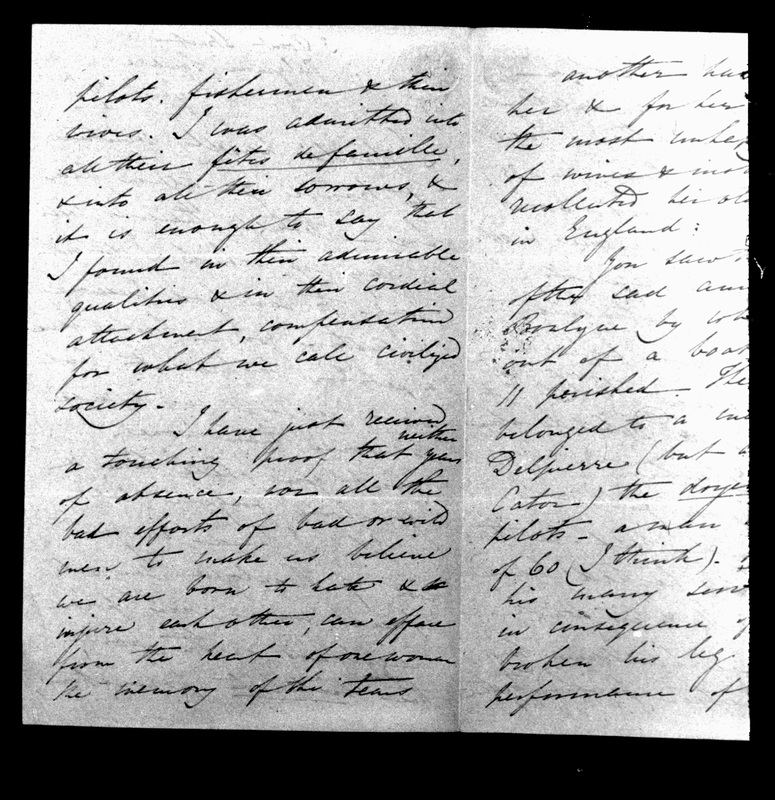 pilots, fishermen & their
wives. I was admitted into
all their fêtes de famille,
& into all their sorrows, &
it is enough to say that
I found in their admirable
qualities & in their cordial
attachment, compensation
for what we call civilized
society.
I have just received
neither
a touching proof that years
of absence, nor all the
bad efforts of bad or wild
men to make us believe
we are born to hate &
injure each other, can efface
from the heart of one woman
the memory of the tears
another had
her & for her
the most unhap
of wives & mot
recollected her old
in England:
You saw
of the sad
Boulogne by
out of a boat
11 perished. The
belonged to a
Delpierre (but
Cator) the doyen
pilots - a man
of 60 (I think).
his many
in consequence of
broken his leg
performance of